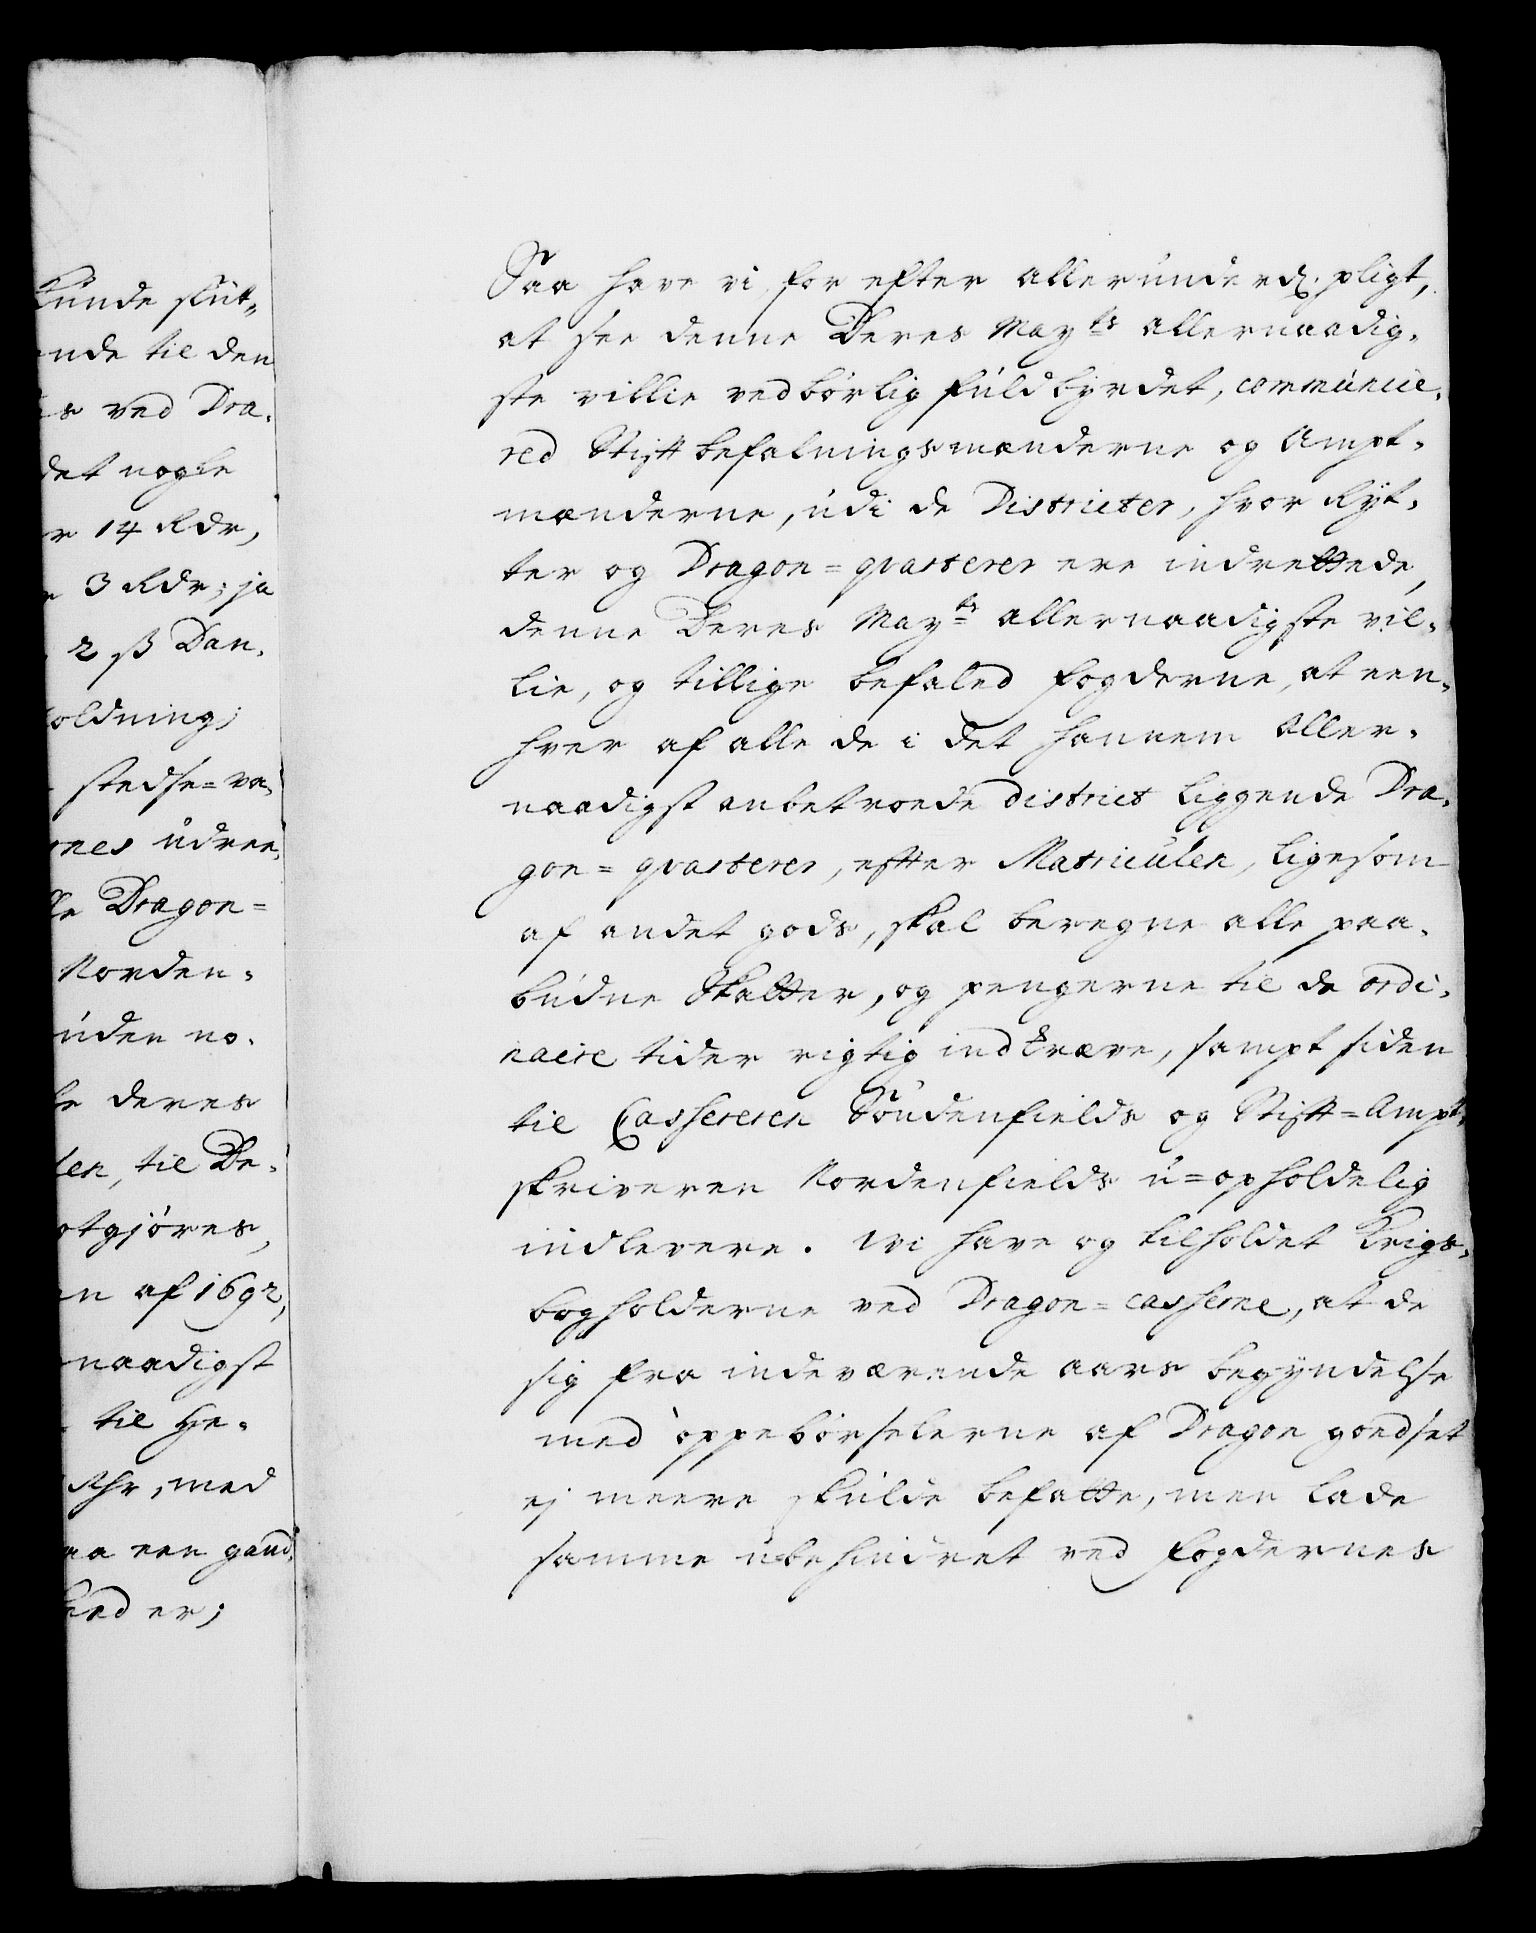 Kunde slut„
nde til den
is ved Dra„
det nogle
r 14 Rdr,
3 Rdr; ja
2 ß Dan„
oldning;
stedse=va„
nes udree„
lle Dragon=
Norden„
uden no„
deres
len, til De„
otgjöres,
en af 1692,
naadigst
til He„
Rhr, med
aa een gand„
ed er;
Saa have vi for efter allerunderd. pligt,
at see denne Deres Mayts allernaadig„
ste villie vedbörlig fuldbyrdet, communice„
red Stiftbefalningsmænderne og Ampt„
mænderne, udi de Districter, hvor Ryt„
ter og Dragon=qvarterer ere indrettede,
denne Deres Mayts allernaadigste vil„
lie, og tillige befaled fogderne, at een„
hver af alle de i det hannem Aller„
naadigst anbetroede district liggende Dra„
gon=qvarterer, efter Matriculen, ligesom
af andet gods, skal beregne alle paa„
budne Skatter, og pengerne til de ordi„
naire tider rigtig indkræve, sampt siden
til Casserer​en Söndenfields og Stift=Ampt„
skriveren Nordenfields u=opholdelig
indlevere. Wi have og tilholdet Krigs„
bogholderne ved Dragon=casserne, at de
sig fra indeværende aars begyndelse
med oppebörselerne af Dragon goedset
ej meere skulde befatte, men lade
samme ubehindret ved fogdernes